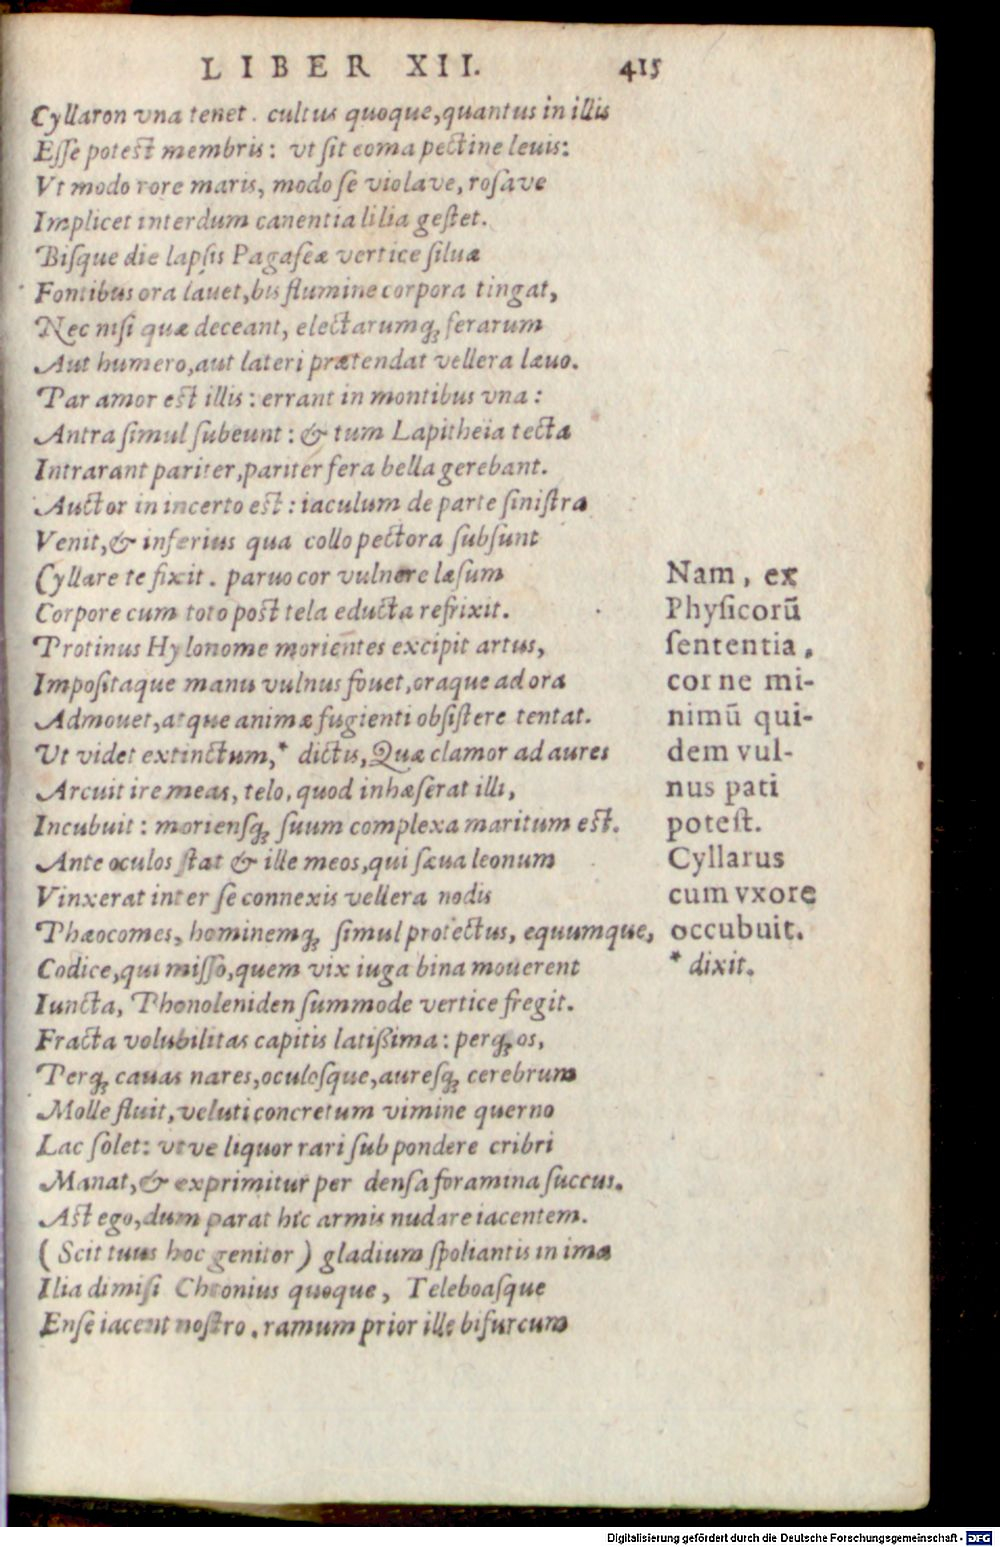 LIBER XII. 415
Cyllaron vna tenet. cultus quoque, quantus in illis
Eſſe poteſt membris: vt ſit coma pectine leuis:
Vt modo rore maris, modo ſe violave, roſave
Implicet interdum canentia lilia geſtet.
Biſque die lapſis Pagaſeæ vertice ſiluæ
Fontibus ora lauet, bis flumine corpora tingat,
Nec niſi quæ deceant, electarumq́ꝫ ferarum
Aut humero, aut lateri prætendat vellera læuo.
Par amor eſt illis: errant in montibus vna:
Antra ſimul ſubeunt: & tum Lapitheia tecta
Intrarant pariter, pariter fera bella gerebant.
Auctor in incerto eſt: iaculum de parte ſiniſtra
Venit, & inferius qua collo pectora ſubſunt
Cyllare te fixit. paruo cor vulnere læſum
Corpore cum toto poſt tela educta refrixit.
Protinus Hylonome morientes excipit artus,
Impoſitaque manu vulnus fouet, oraque ad ora
Admouet, atque animæ fugienti obſiſtere tentat.
Ut videt extinctum,* dictis, Quæ clamor ad aures
Arcuit ire meas, telo, quod inhæſerat illi,
Incubuit: moriensq́ꝫ ſuum complexa maritum eſt.
Ante oculos ſtat & ille meos, qui ſæua leonum
Vinxerat inter ſe connexis vellera nodis
Phæocomes, hominemq́ꝫ ſimul protectus, equumque,
Codice, qui miſſo, quem vix iuga bina mouerent
Iuncta, Phonoleniden ſummo de vertice fregit.
Fracta volubilitas capitis latiſſima: perq́ꝫ os,
Perq́ꝫ cauas nares, oculoſque, aureſq́ꝫ cerebrum
Molle fluit, veluti concretum vimine querno
Lac ſolet: vtve liquor rari ſub pondere cribri
Manat, & exprimitur per denſa foramina ſuccus.
Aſt ego, dum parat hic armis nudare iacentem.
(Scit tuus hoc genitor) gladium ſpoliantis in ima
Ilia dimiſi Chtonius quoque, Teleboaſque
Enſe iacent noſtro. ramum prior ille bifurcum
Nam, ex
Phyſicorū
ſententia,
cor ne mi-
nimū qui-
dem vul-
nus pati
poteſt.
Cyllarus
cum vxore
occubuit.
* dixit.
Digitalisierung gefördert durch die Deutsche Forschungsgemeinschaft - DFG